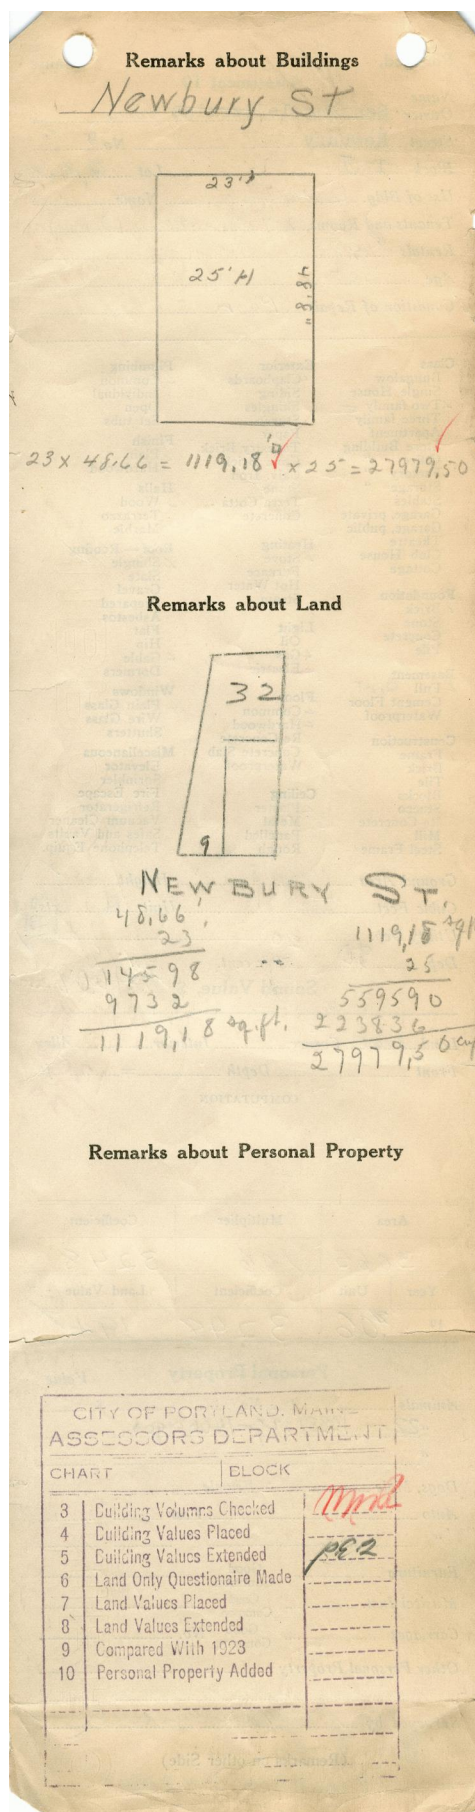 Remarks about Buildings
Newbury St
23'
25'H
48'8"
23 x 48.66 = 1119.18 x 25 = 27979.50
Remarks about Land
32
9
NEWBURY ST.
48.66'
23
14598
9732
1119.18 sq.ft.
1119.18 sq
25
559590
223836
27979.50 cu
Remarks about Personal Property
CITY OF PORTLAND, MAINE
ASSESSORS DEPARTMENT
CHART BLOCK
3 Building Volumns Checked
4 Building Values Placed
5 Building Values Extended
6 Land Only Questionaire Made
7 Land Values Placed
8 Land Values Extended
9 Compared With 1923
10 Personal Property Added